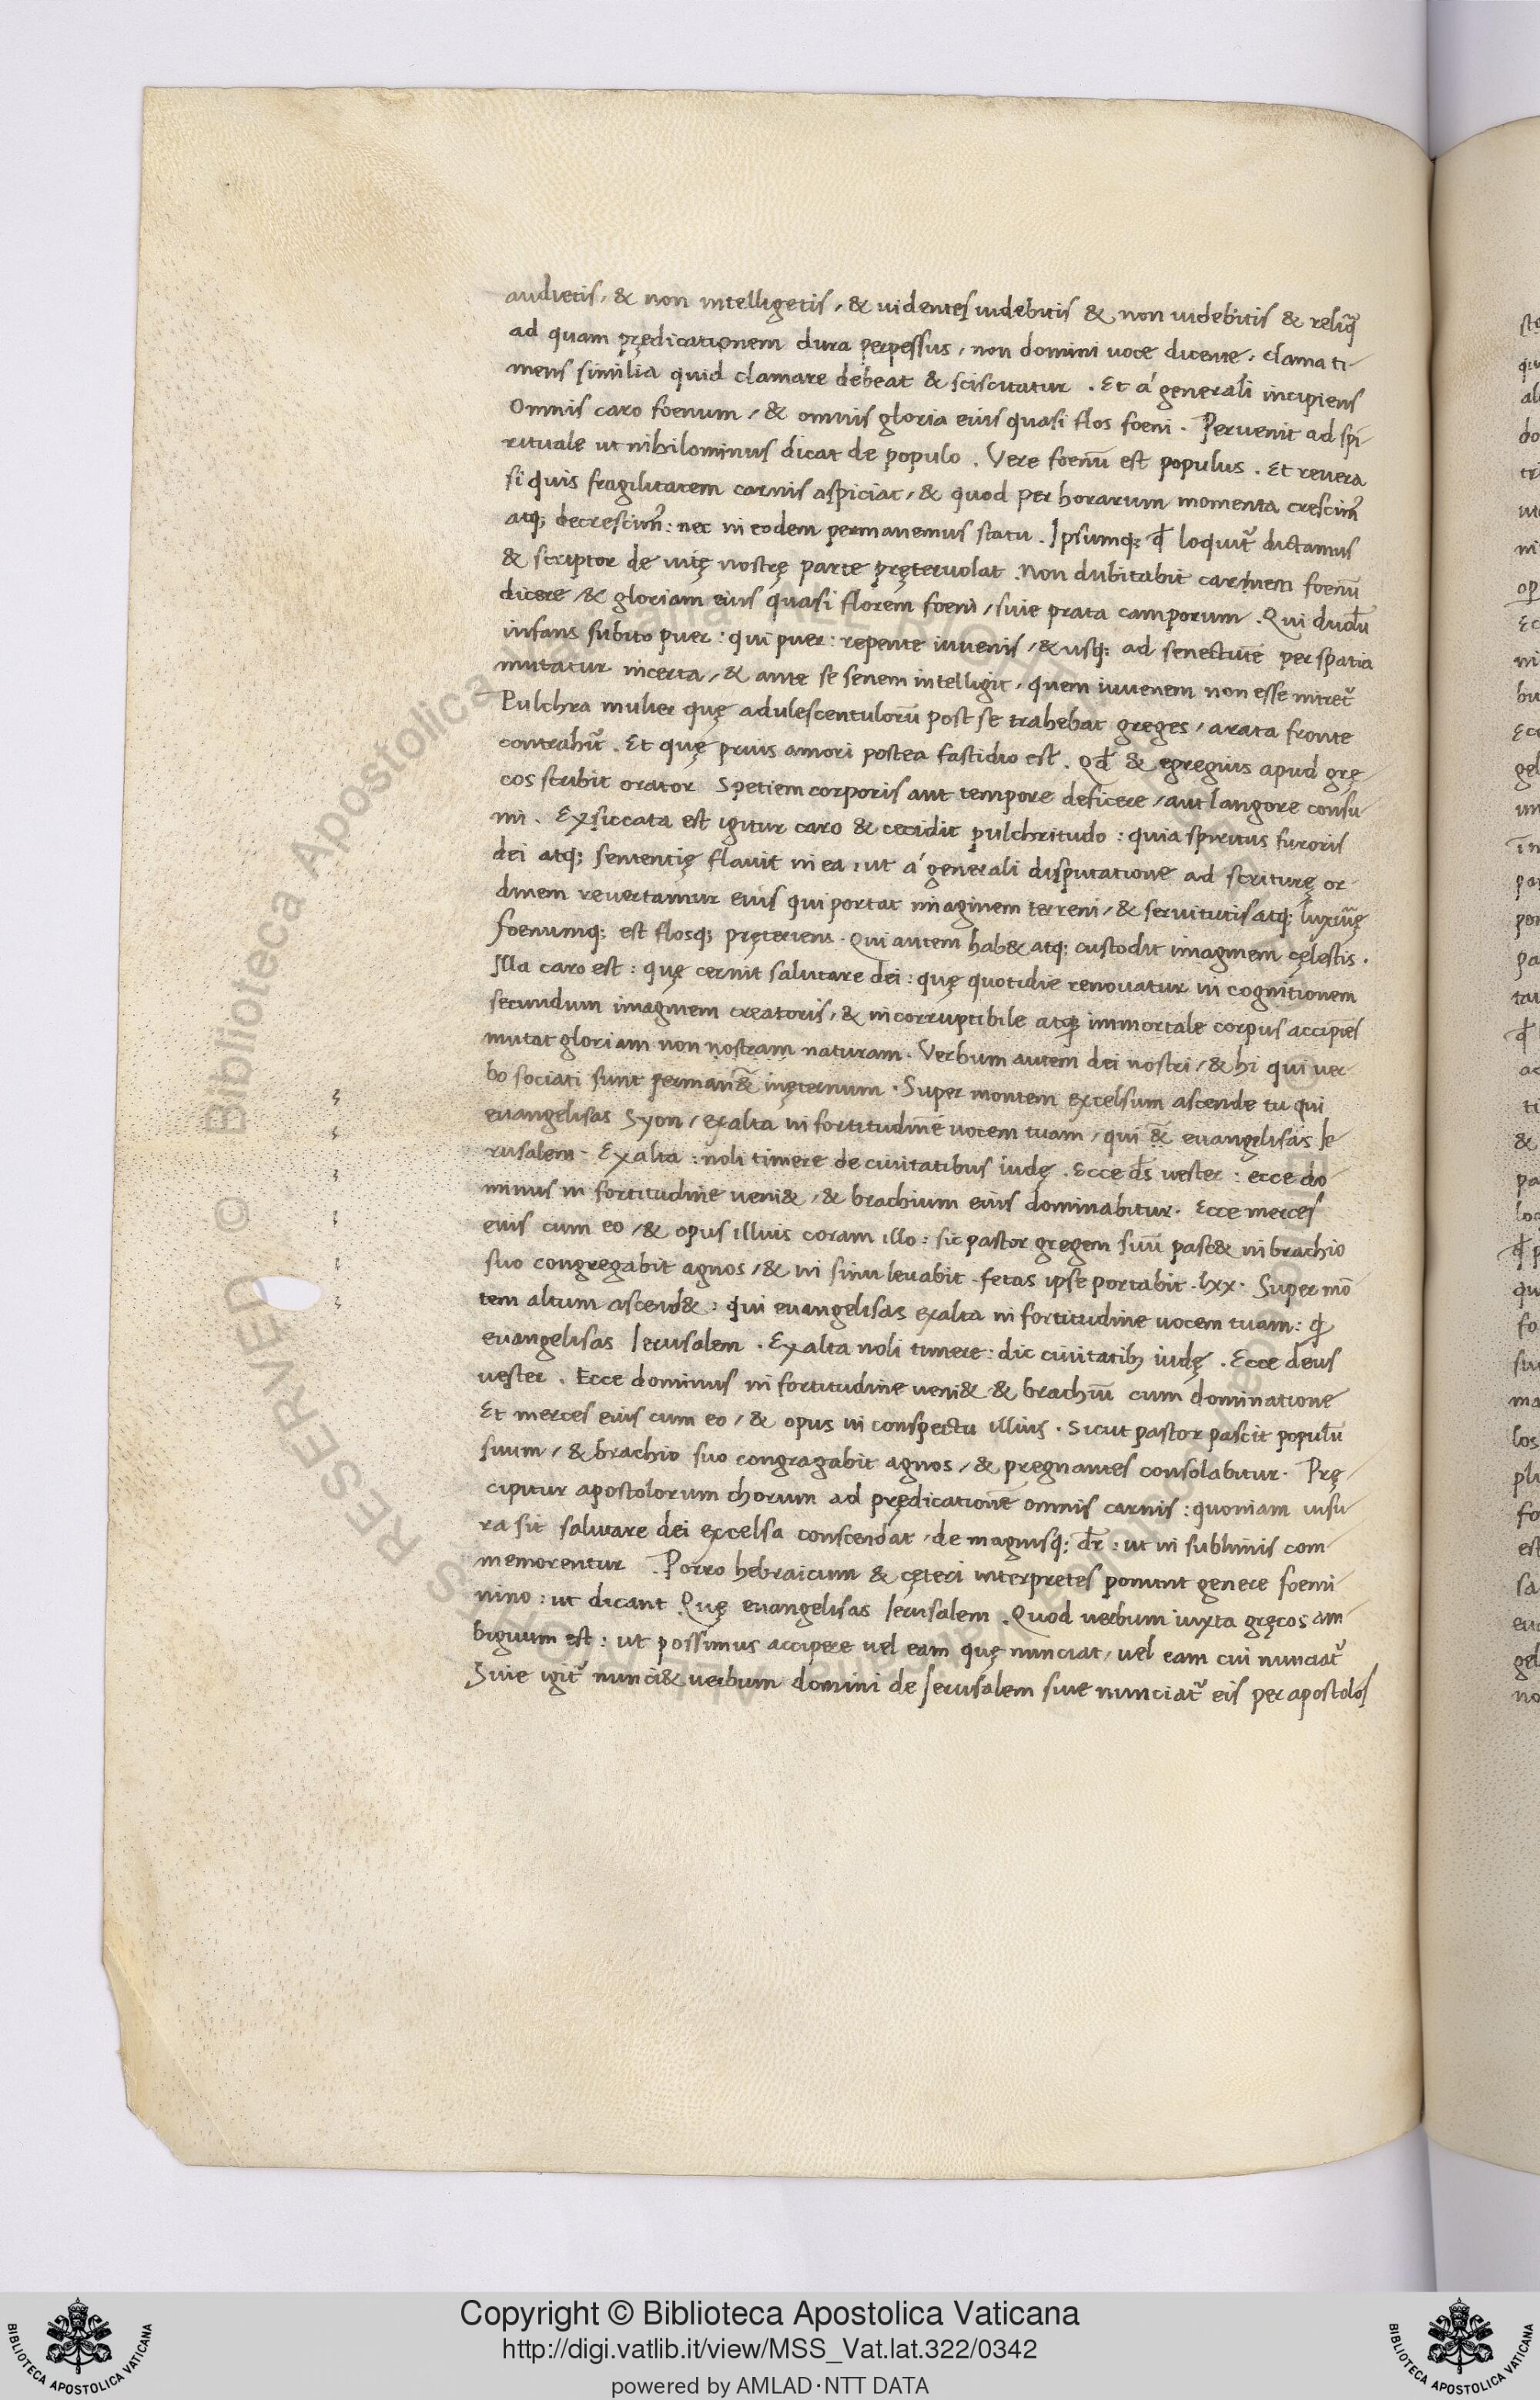 audietis, & non intelligetis, & uidentes uidebitis & non uidebitis & reliq̃
ad quam prędicationem dura perpessus, non domini uoce dicente, clama ti-
mens similia quid clamare debeat & sciscitatur . Et á generali incipiens
Omnis caro foenum, & omnis gloria eius quasi flos foeni . Peruenit ad spi-
rituale ut nihilominus dicat de populo . Vere foenũ est populus . Et reuera
si quis fragilitatem carnis aspiciat, & quod per horarum momenta crescim᷒
atq; decrescim᷒: nec in eodem permanemus statu . Ipsumq; ꝙ loquit᷒ dictamus
& scriptor de uitę nostrę parte pręteruolat . Non dubitabit carmen foenũ
dicere, & gloriam eius quasi florem foeni, siue prata camporum . Qui dudũ
infans subito puer : qui puer : repente iuuenis, & usq; ad senectutẽ per spatia
mutatur incerta, & ante se senem intelligit, quem iuuenem non esse miret᷒
Pulchra mulier quę adulescentulorũ post se trahebat greges, arata fronte
contrahit᷒ . Et quę prius amori postea fastidio est . Qđ & egregius apud gre-
cos scribit orator Spetiem corporis aut tempore deficere, aut langore consu-
mi . Exsiccata est igitur caro & cecidit pulchritudo : quia spiritus furoris
dei atq; sententię flauit in ea, ut á generali disputatione ad scripturę or-
dinem reuertamur eius qui portat imaginem terreni, & seruitutis atq; luxurię
foenumq; est flosq; pręteriens . Qui autem hab& atq; custodit imaginem cęlestis .
Illa caro est : quę cernit salutare dei : quę quotidie renouatur in cognitionem
secundum imaginem creatoris, & incorruptibile atq; immortale corpus accipiẽs
mutat gloriam non nostram naturam . Verbum autem dei nostri, & hi qui uer-
bo sociati sunt permanẽ& inęternum . Super montem excelsum ascende tu qui
euangelisas Syon, exalta in fortitudinẽ uocem tuam, qui & euangelisas Ie-
rusalem . Exalta : noli timere de ciuitatibus iudę . Ecce dš uester : ecce do-
minus in fortitudine ueni&, & brachium eius dominabitur . Ecce merces
eius cum eo, & opus illius coram illo : sic pastor gregem suũ pasc& in brachio
suo congregabit agnos, & in sinu leuabit . fetas ipse portabit . lxx . Super mõ-
tem altum ascend& : qui euangelisas exalta in fortitudine uocem tuam : ꝗ
euangelisas Ierusalem . Exalta noli timere : dic ciuitatib; iudę . Ecce deus
uester . Ecce dominus in fortitudine ueni& & brachiũ cum dominatione
Et merces eius cum eo, & opus in conspectu illius . Sicut pastor pascit populũ
suum, & brachio suo congragabit agnos, & pregnantes consolabitur . Prę-
cipitur apostolorum chorum ad prędicationẽ omnis carnis : quoniam uisu-
ra sit salutare dei excelsa conscendat, de magnisq; dr̃ : ut in sublimis com-
memorentur . Porro hebraicum & cęteri interpretes ponunt genere foemi-
nino : ut dicant . Quę euangelisas Ierusalem . Quod uerbum iuxta gręcos am-
biguum est : ut possimus accipere uel eam quę nunciat, uel eam cui nunciat᷒
Siue igit᷒ nunci& uerbum domini de Ierusalem siue nunciat᷒ eis per apostolos
Copyright © Biblioteca Apostolica Vaticana
http://digi.vatlib.it/view/MSS_Vat.lat.322/0342
powered by AMLAD·NTT DATA